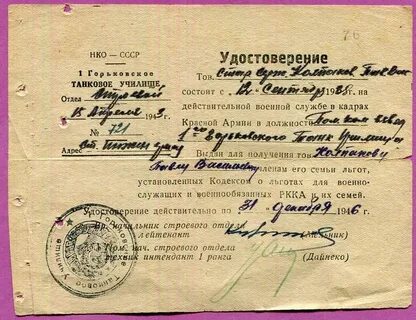 76
НКО — СССР
1 Горьковское
ТАНКОВОЕ УЧИЛИЩЕ
Отдел Строевой
15 Апреля 1943 г.
№ 721
Адрес
Удостоверение
Тов. Стар. Серж.
состоит с „12" Сентября 1938 г. на
действительной военной службе в кадрах
Красной Армии в должности Пом ком взвод
1го Горьковского Танк Училища
Выдан для получения тов.
Павлу членам его семьи льгот,
установленных Кодексом о льготах для военно-
служащих и военнообязанных РККА и их семей.
Удостоверение действительно по „31" декабря 1946
начальник строевого отдела
лейтенант (Мельник)
Пом. нач. строевого отдела
техник интендант 1 ранга (Дайнеко)